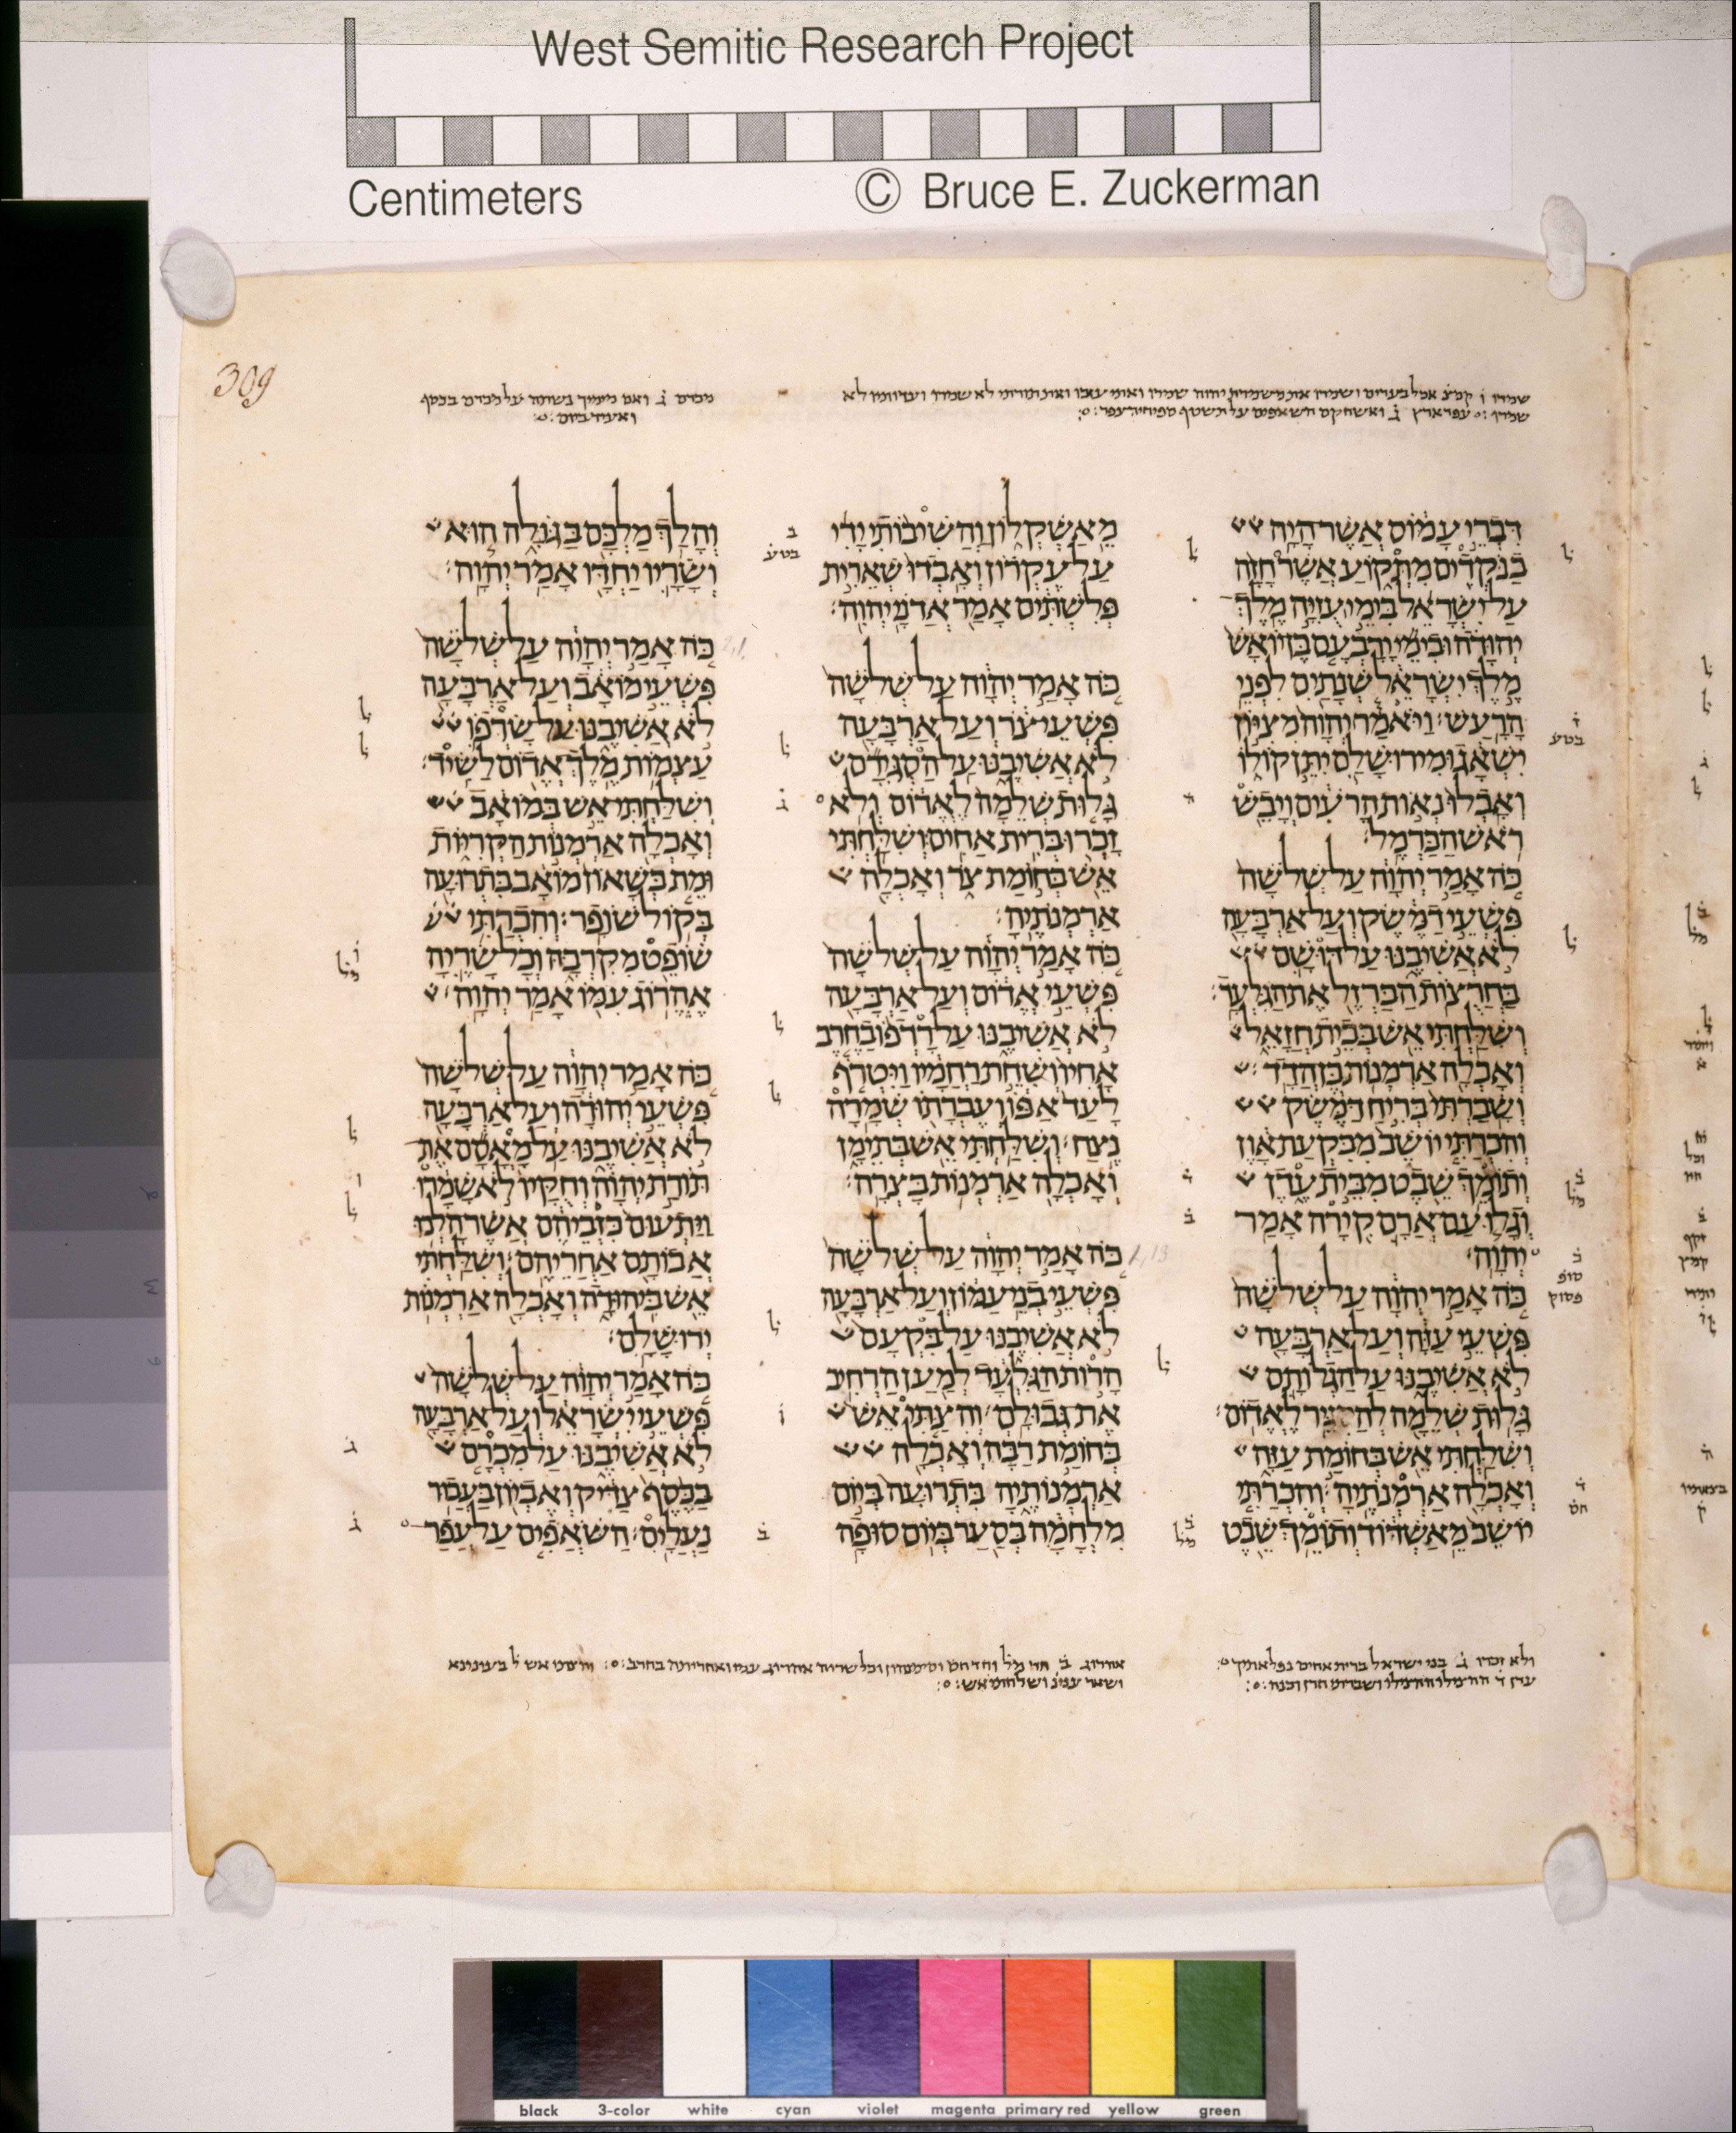 West Semitic Research Project
Centimeters © Bruce E. Zuckerman
309
דִּבְרֵי עָמוֹס אֲשֶׁר הָיָה
בַנֹּקְדִים מִתְּקוֹעַ אֲשֶׁר חָזָה
עַל יִשְׂרָאֵל בִּימֵי עֻזִּיָּה מֶלֶךְ
יְהוּדָה וּבִימֵי יָרָבְעָם בֶּן יוֹאָשׁ
מֶלֶךְ יִשְׂרָאֵל שְׁנָתַיִם לִפְנֵי
הָרָעַשׁ׃ וַיֹּאמַר יְהוָה מִצִּיּוֹן
יִשְׁאָג וּמִירוּשָׁלִַם יִתֵּן קוֹלוֹ
וְאָבְלוּ נְאוֹת הָרֹעִים וְיָבֵשׁ
רֹאשׁ הַכַּרְמֶל׃
כֹּה אָמַר יְהוָה עַל שְׁלֹשָׁה
פִּשְׁעֵי דַמֶּשֶׂק וְעַל אַרְבָּעָה
לֹא אֲשִׁיבֶנּוּ עַל דּוּשָׁם
בַּחֲרֻצוֹת הַבַּרְזֶל אֶת הַגִּלְעָד׃
וְשִׁלַּחְתִּי אֵשׁ בְּבֵית חֲזָאֵל
וְאָכְלָה אַרְמְנוֹת בֶּן הֲדָד׃
וְשָׁבַרְתִּי בְּרִיחַ דַּמֶּשֶׂק
וְהִכְרַתִּי יוֹשֵׁב מִבִּקְעַת אָוֶן
וְתוֹמֵךְ שֵׁבֶט מִבֵּית עֶדֶן
וְגָלוּ עַם אֲרָם קִירָה אָמַר
יְהוָה׃
כֹּה אָמַר יְהוָה עַל שְׁלֹשָׁה
פִּשְׁעֵי עַזָּה וְעַל אַרְבָּעָה
לֹא אֲשִׁיבֶנּוּ עַל הַגְלוֹתָם
גָּלוּת שְׁלֵמָה לְהַסְגִּיר לֶאֱדוֹם׃
וְשִׁלַּחְתִּי אֵשׁ בְּחוֹמַת עַזָּה
וְאָכְלָה אַרְמְנֹתֶיהָ׃ וְהִכְרַתִּי
יוֹשֵׁב מֵאַשְׁדּוֹד וְתוֹמֵךְ שֵׁבֶט
מֵאַשְׁקְלוֹן וַהֲשִׁיבוֹתִי יָדִי
עַל עֶקְרוֹן וְאָבְדוּ שְׁאֵרִית
פְּלִשְׁתִּים אָמַר אֲדֹנָי יְהוִה׃
כֹּה אָמַר יְהוָה עַל שְׁלֹשָׁה
פִּשְׁעֵי צֹר וְעַל אַרְבָּעָה
לֹא אֲשִׁיבֶנּוּ עַל הַסְגִּירָם
גָּלוּת שְׁלֵמָה לֶאֱדוֹם וְלֹא
זָכְרוּ בְּרִית אַחִים׃ וְשִׁלַּחְתִּי
אֵשׁ בְּחוֹמַת צֹר וְאָכְלָה
אַרְמְנֹתֶיהָ׃
כֹּה אָמַר יְהוָה עַל שְׁלֹשָׁה
פִּשְׁעֵי אֱדוֹם וְעַל אַרְבָּעָה
לֹא אֲשִׁיבֶנּוּ עַל רָדְפוֹ בַחֶרֶב
אָחִיו וְשִׁחֵת רַחֲמָיו וַיִּטְרֹף
לָעַד אַפּוֹ וְעֶבְרָתוֹ שְׁמָרָה
נֶצַח׃ וְשִׁלַּחְתִּי אֵשׁ בְּתֵימָן
וְאָכְלָה אַרְמְנוֹת בָּצְרָה׃
כֹּה אָמַר יְהוָה עַל שְׁלֹשָׁה
פִּשְׁעֵי בְנֵי עַמּוֹן וְעַל אַרְבָּעָה
לֹא אֲשִׁיבֶנּוּ עַל בִּקְעָם
הָרוֹת הַגִּלְעָד לְמַעַן הַרְחִיב
אֶת גְּבוּלָם׃ וְהִצַּתִּי אֵשׁ
בְּחוֹמַת רַבָּה וְאָכְלָה
אַרְמְנוֹתֶיהָ בִּתְרוּעָה בְּיוֹם
מִלְחָמָה בְּסַעַר בְּיוֹם סוּפָה׃
וְהָלַךְ מַלְכָּם בַּגּוֹלָה הוּא
וְשָׂרָיו יַחְדָּו אָמַר יְהוָה׃
כֹּה אָמַר יְהוָה עַל שְׁלֹשָׁה
פִּשְׁעֵי מוֹאָב וְעַל אַרְבָּעָה
לֹא אֲשִׁיבֶנּוּ עַל שָׂרְפוֹ
עַצְמוֹת מֶלֶךְ אֱדוֹם לַשִּׂיד׃
וְשִׁלַּחְתִּי אֵשׁ בְּמוֹאָב
וְאָכְלָה אַרְמְנוֹת הַקְּרִיּוֹת
וּמֵת בְּשָׁאוֹן מוֹאָב בִּתְרוּעָה
בְּקוֹל שׁוֹפָר׃ וְהִכְרַתִּי
שׁוֹפֵט מִקִּרְבָּהּ וְכָל שָׂרֶיהָ
אֶהֱרוֹג עִמּוֹ אָמַר יְהוָה׃
כֹּה אָמַר יְהוָה עַל שְׁלֹשָׁה
פִּשְׁעֵי יְהוּדָה וְעַל אַרְבָּעָה
לֹא אֲשִׁיבֶנּוּ עַל מָאֳסָם אֶת
תּוֹרַת יְהוָה וְחֻקָּיו לֹא שָׁמָרוּ
וַיַּתְעוּם כִּזְבֵיהֶם אֲשֶׁר הָלְכוּ
אֲבוֹתָם אַחֲרֵיהֶם׃ וְשִׁלַּחְתִּי
אֵשׁ בִּיהוּדָה וְאָכְלָה אַרְמְנוֹת
יְרוּשָׁלִָם׃
כֹּה אָמַר יְהוָה עַל שְׁלֹשָׁה
פִּשְׁעֵי יִשְׂרָאֵל וְעַל אַרְבָּעָה
לֹא אֲשִׁיבֶנּוּ עַל מִכְרָם
בַּכֶּסֶף צַדִּיק וְאֶבְיוֹן בַּעֲבוּר
נַעֲלָיִם׃ הַשֹּׁאֲפִים עַל עֲפַר
black 3-color white cyan violet magenta primary red yellow green